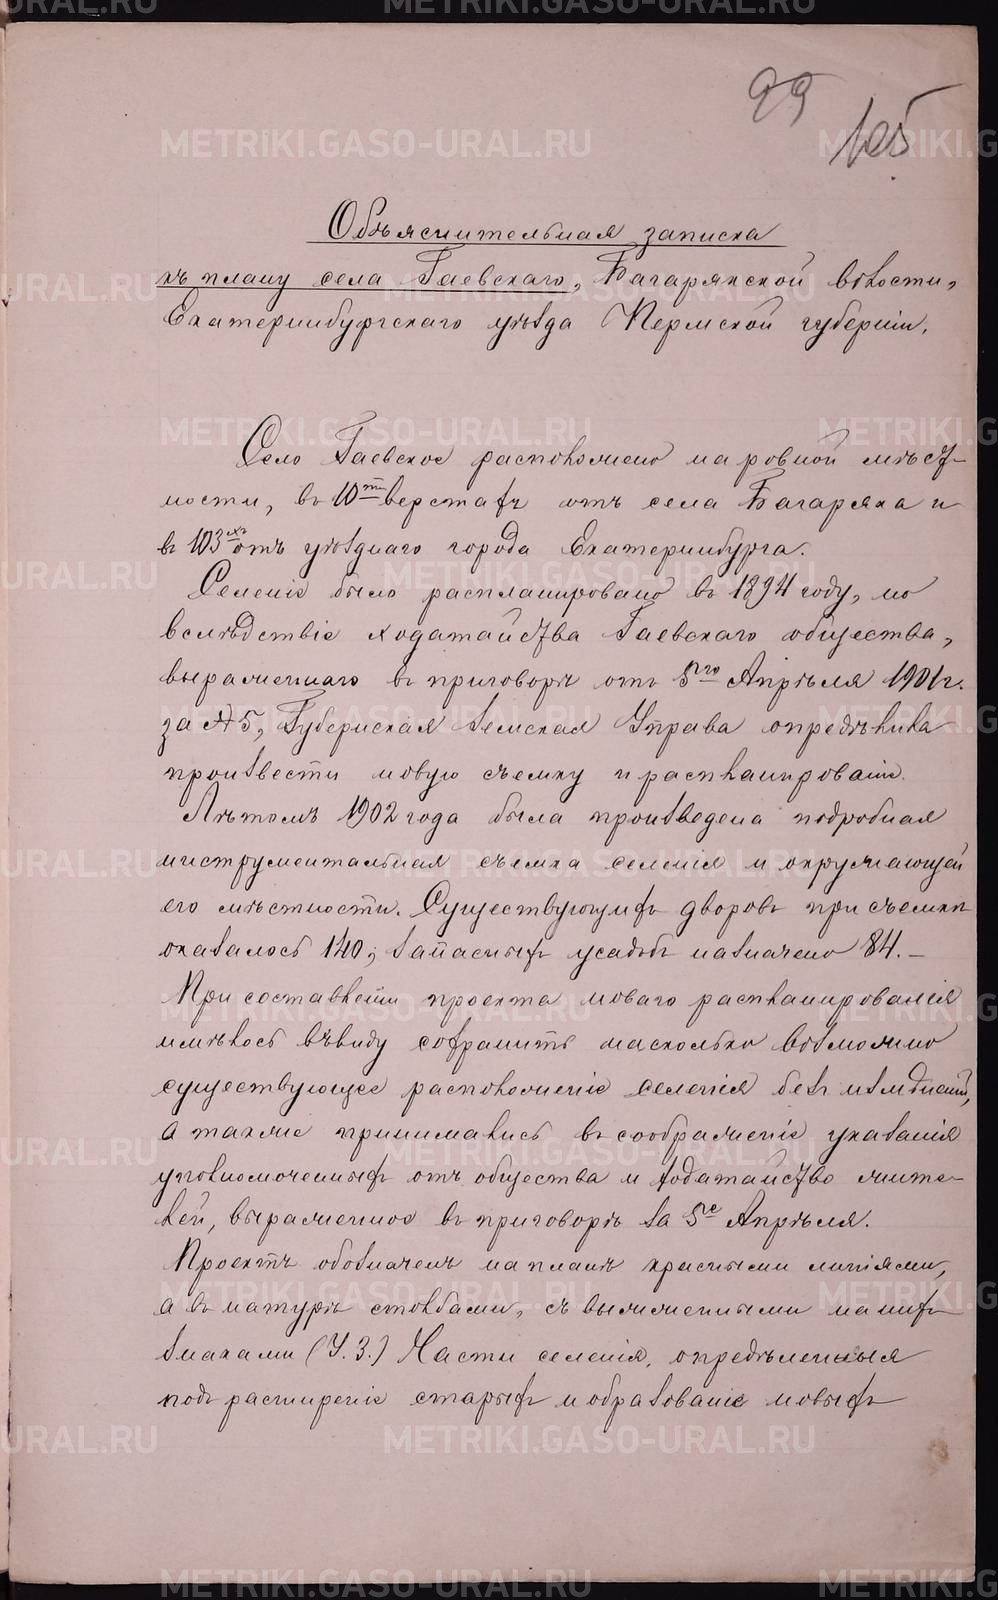 99
105
Объяснительная записка
къ плану села Гаевскаго, Багарякской волости,
Екатеринбургскаго уѣзда Пермской губерніи.
Село Гаевское расположено на ровной мѣст-
ности, въ 10ти верстахъ отъ села Багаряка и
въ 103хъ отъ уѣзднаго города Екатеринбурга.
Селеніе было распланировано въ 1894 году, но
вслѣдствіе ходатайства Гаевскаго общества,
выраженнаго въ приговорѣ отъ 5го Апрѣля 1901 г.
за № 5, Губернская Земская Управа опредѣлила
произвести новую съемку и распланированіе.
Лѣтомъ 1902 года была произведена подробная
инструментальная съемка селенія и окружающей
его мѣстности. Существующихъ дворовъ при съемкѣ
оказалось 140; запасныхъ усадьбъ назначено 84.—
При составленіи проекта новаго распланированія
имѣлось въ виду сохранить насколько возможно
существующее расположеніе селенія безъ измѣненій,
а также принимались въ соображеніе указанія
уполномоченныхъ отъ общества и ходатайство жите-
лей, выраженное въ приговорѣ за 5е Апрѣля.
Проектъ обозначенъ на планѣ красными линіями,
а въ натурѣ столбами, съ выжженными на нихъ
знаками (У.З.) Части селенія, опредѣленныя
подъ расширеніе старыхъ и образованіе новыхъ
METRIKI.GASO-URAL.RU